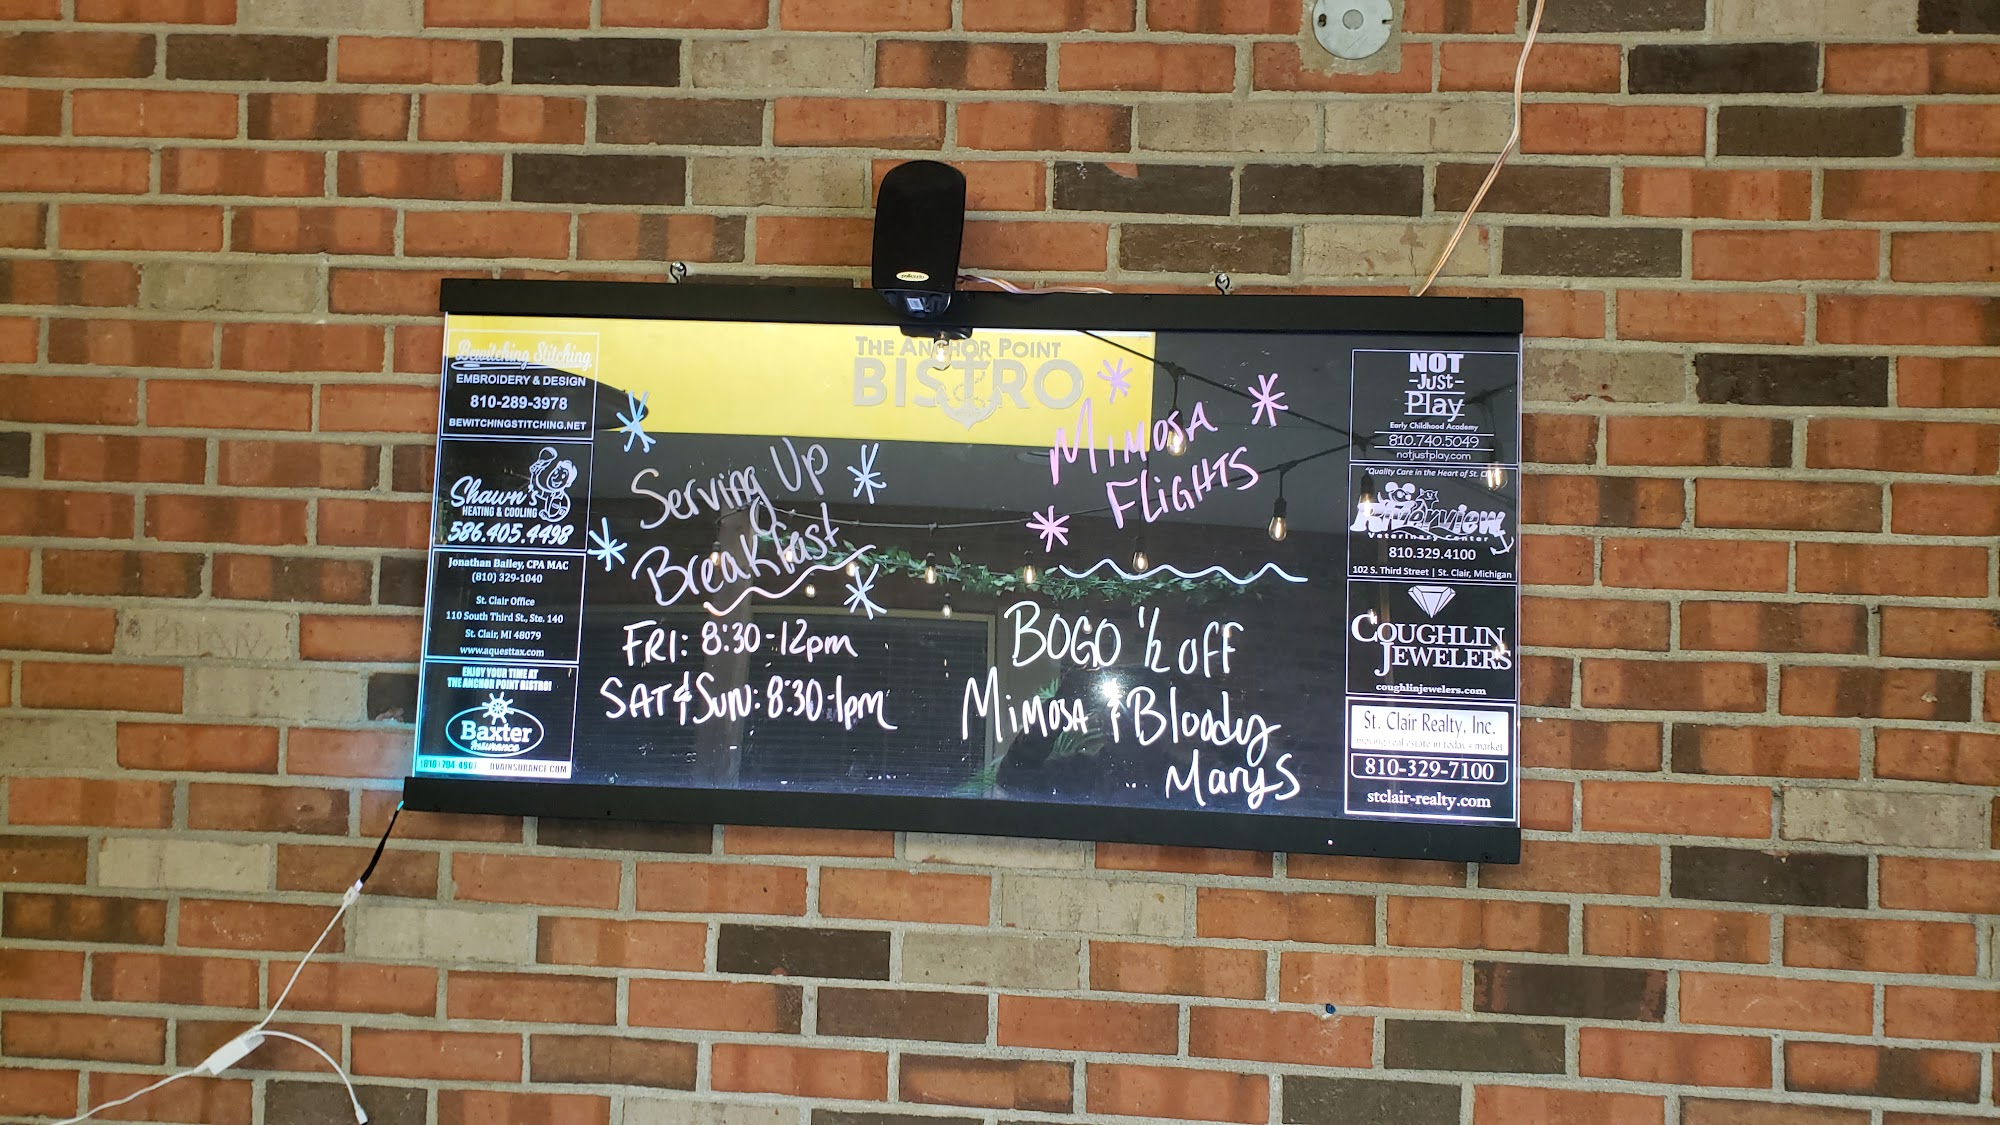 THE ANCHOR POINT
BISTRO
Bewitching Stitching
EMBROIDERY & DESIGN
810-289-3978
BEWITCHINGSTITCHING.NET
Shawn's
HEATING & COOLING
586.405.4498
Jonathan Bailey, CPA MAC
(810) 329-1040
St. Clair Office
110 South Third St., Ste. 140
St. Clair, MI 48079
www.aquesttax.com
ENJOY YOUR TIME AT
THE ANCHOR POINT BISTRO!
Baxter
Insurance
(810) 794-4907 BVAINSURANCE.COM
Serving Up
Breakfast
FRI: 8:30-12pm
SAT & SUN: 8:30-1pm
MIMOSA
FLIGHTS
BOGO 1/2 OFF
MIMOSA & Bloody
Marys
NOT
-JUST-
Play
Early Childhood Academy
810.740.5049
notjustplay.com
"Quality Care in the Heart of St.
Riverview
Veterinary Center
810.329.4100
102 S. Third Street | St. Clair, Michigan
COUGHLIN
JEWELERS
coughlinjewelers.com
St. Clair Realty, Inc.
moving real estate in today's market
810-329-7100
stclair-realty.com